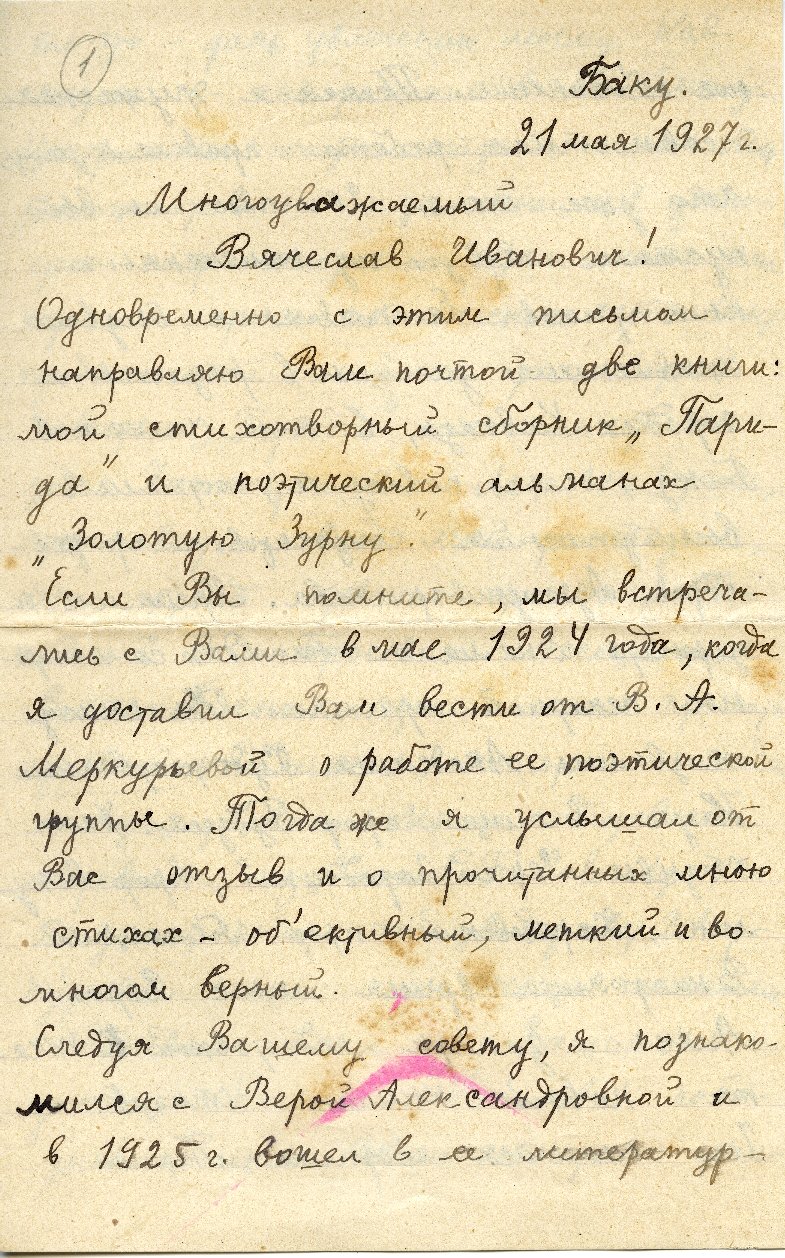 1
Баку.
21 мая 1927 г.
Многоуважаемый
Вячеслав Иванович!
Одновременно с этим письмом
направляю Вам почтой две книги:
мой стихотворный сборник „Пари-
да" и поэтический альманах
„Золотую Зурну".
Если Вы помните, мы встреча-
лись с Вами в мае 1924 года, когда
я доставил Вам вести от В. А.
Меркурьевой о работе ее поэтической
группы. Тогда же я услышал от
Вас отзыв и о прочитанных мною
стихах – об'ективный, меткий и во
многом верный.
Следуя Вашему совету, я познако-
мился с Верой Александровной и
в 1925 г. вошел в ее литератур-